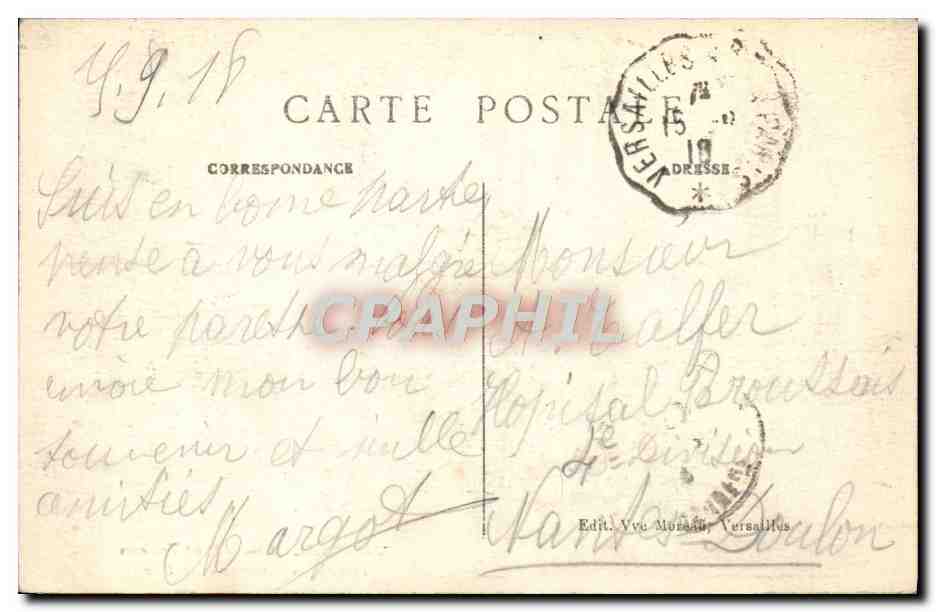 5.9.18
CARTE POSTALE
VERSAILLES
15
18
CORRESPONDANCE
ADRESSE
Suis en bonne
pense à vous malgré
votre
envoie mon bon
souvenir et mille
amitiés
Margot
Monsieur
Hôpital Broussais
4e Division
Nantes-Doulon
Edit. Vve Moreau, Versailles
CPAPHIL